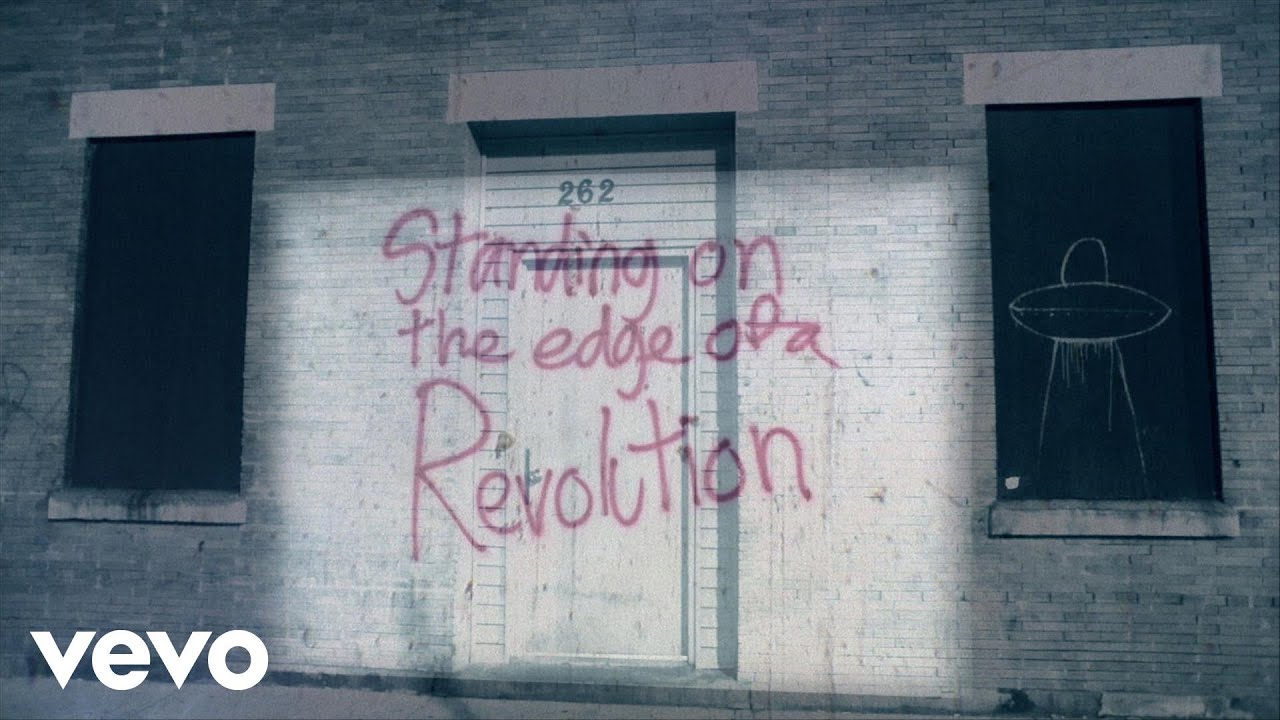 262
Standing on
the edge of a
Revolution
vevo